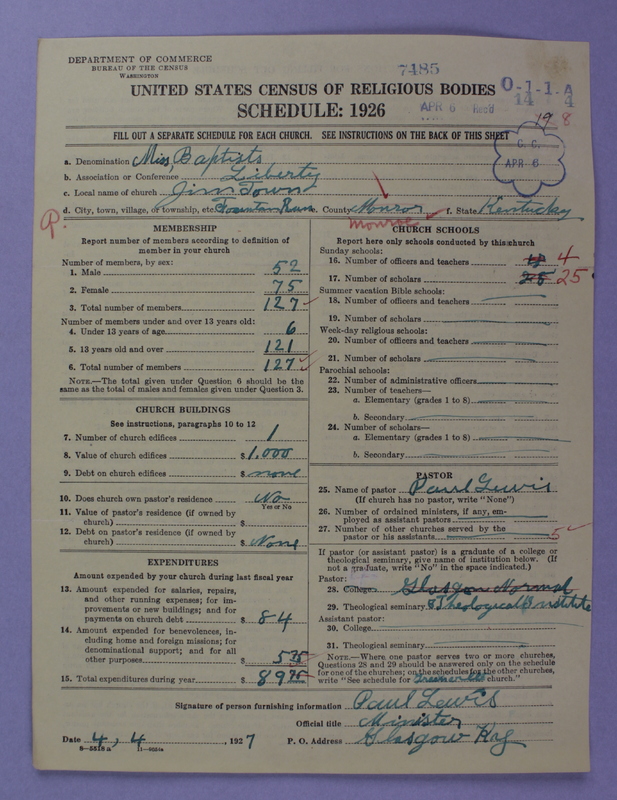 DEPARTMENT OF COMMERCE
BUREAU OF THE CENSUS
WASHINGTON
7485
UNITED STATES CENSUS OF RELIGIOUS BODIES
SCHEDULE: 1926
APR 6
O-1-1-A
14 4
19 8
FILL OUT A SEPARATE SCHEDULE FOR EACH CHURCH. SEE INSTRUCTIONS ON THE BACK OF THIS SHEET
C. C.
APR 6
a. Denomination Miss, Baptists
b. Association or Conference Liberty
c. Local name of church Jim Town
d. City, town, village, or township, etc. Fountain Run e. County Monroe f. State Kentucky
Monroe
MEMBERSHIP
Report number of members according to definition of member in your church
Number of members, by sex:
1. Male 52
2. Female 75
3. Total number of members 127
Number of members under and over 13 years old:
4. Under 13 years of age 6
5. 13 years old and over 121
6. Total number of members 127
NOTE.—The total given under Question 6 should be the
same as the total of males and females given under Question 3.
CHURCH BUILDINGS
See instructions, paragraphs 10 to 12
7. Number of church edifices 1
8. Value of church edifices $1,000
9. Debt on church edifices $ none
10. Does church own pastor's residence No
Yes or No
11. Value of pastor's residence (if owned by
church) $
12. Debt on pastor's residence (if owned by
church) $ None
EXPENDITURES
Amount expended by your church during last fiscal year
13. Amount expended for salaries, repairs,
and other running expenses; for im-
provements or new buildings; and for
payments on church debt $ 84
14. Amount expended for benevolences, in-
cluding home and foreign missions; for
denominational support; and for all
other purposes $ 5 25
15. Total expenditures during year $ 89 25
CHURCH SCHOOLS
Report here only schools conducted by this church
Sunday schools:
16. Number of officers and teachers 4
17. Number of scholars 25 25
Summer vacation Bible schools:
18. Number of officers and teachers
19. Number of scholars
Week-day religious schools:
20. Number of officers and teachers
21. Number of scholars
Parochial schools:
22. Number of administrative officers
23. Number of teachers—
a. Elementary (grades 1 to 8)
b. Secondary
24. Number of scholars—
a. Elementary (grades 1 to 8)
b. Secondary
PASTOR
25. Name of pastor Paul Lewis
(If church has no pastor, write "None")
26. Number of ordained ministers, if any, em-
ployed as assistant pastors
27. Number of other churches served by the
pastor or his assistants 5
If pastor (or assistant pastor) is a graduate of a college or
theological seminary, give name of institution below. (If
not a graduate, write "No" in the space indicated.)
Pastor:
28. College Glasgow Normal
29. Theological seminary Theological Institute
Assistant pastor:
30. College
31. Theological seminary
NOTE.—Where one pastor serves two or more churches,
Questions 28 and 29 should be answered only on the schedule
for one of the churches; on the schedules for the other churches,
write "See schedule for church."
Signature of person furnishing information Paul Lewis
Official title Minister
Date 4, 4, 1927 P. O. Address Glasgow Ky
8-5518a 11-9224a